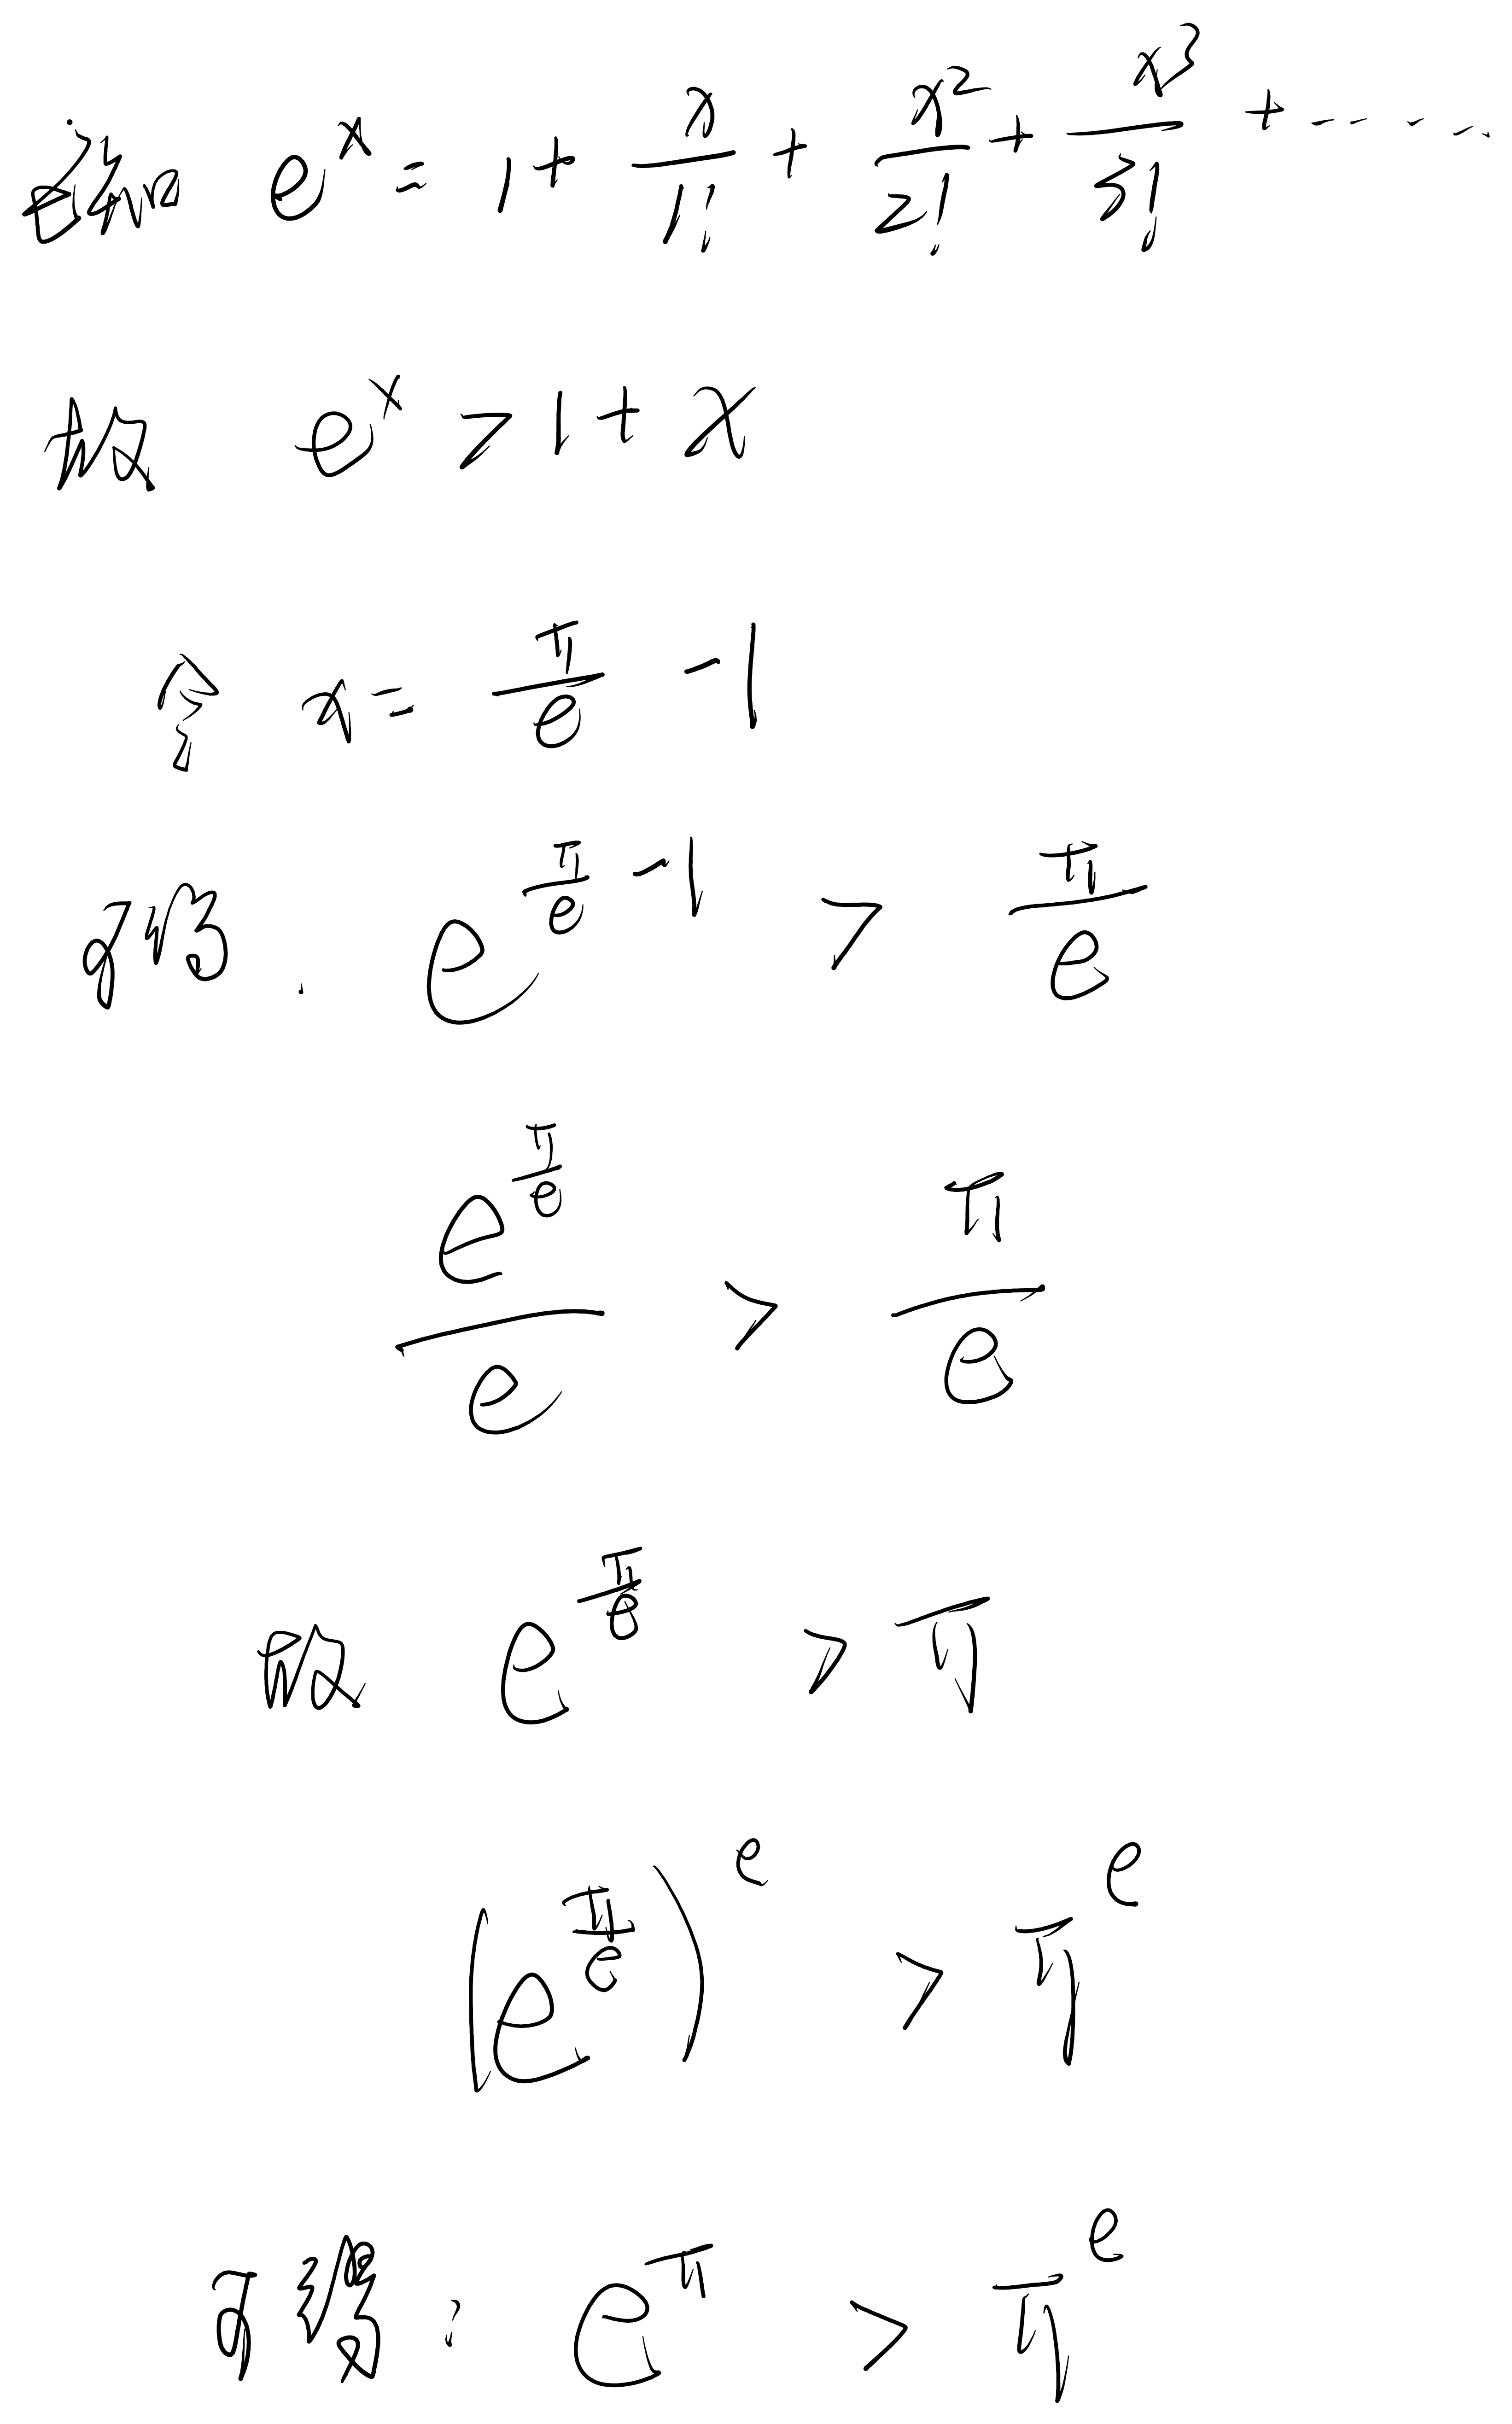 已知 e^x = 1 + x/1! + x^2/2! + x^3/3! + ......
故 e^x > 1 + x
令 x = π/e - 1
可得: e^(π/e - 1) > π/e
e^(π/e)/e > π/e
故 e^(π/e) > π
(e^(π/e))^e > π^e
可得: e^π > π^e